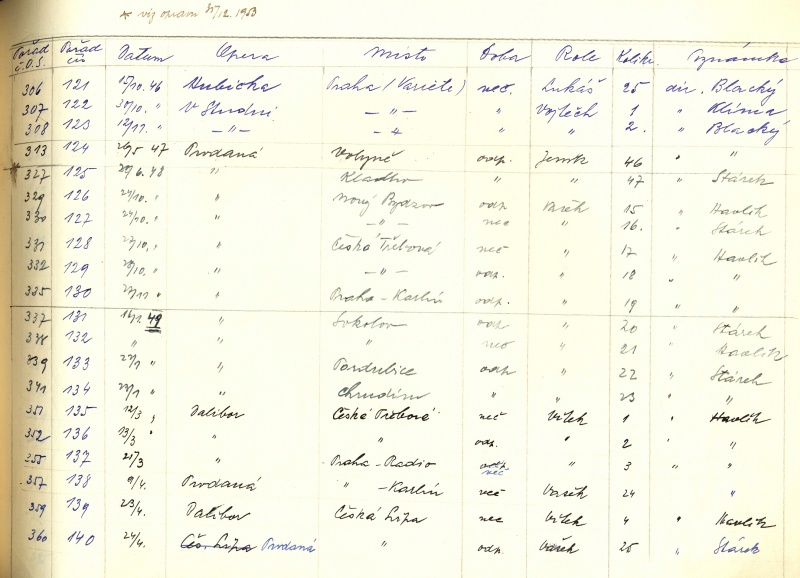 * viz opram 31/12. 1953
Pořad č.O.S. Pořad čís Datum Opera Místo Doba Role Kolik. Poznámka
306 121 15/10. 46 Hubička Praha (Varieté) več. Lukáš 25 dir. Blacký
307 122 30/10. " V Studni — " — " Vojtěch 1 " Klíma
308 123 12/11. " — " — — " — " " 2. " Blacký
313 124 26/5 47 Prodaná Volyně odp. Jeník 46 " "
* 327 125 20/6. 48 " Kladno " " 47 " Stárek
329 126 24/10. " " Nový Bydžov odp. Vašek 15 " Havlík
330 127 24/10. " " — " — več " 16. " Stárek
331 128 27/10. " " Česká Třebová več " 17 " Havlík
332 129 28/10. " " — " — odp. " 18 " "
335 130 27/11 " " Praha - Karlín odp. " 19 " "
337 131 16/1 49 " Sokolov odp " 20 " Stárek
338 132 " " " več " 21 " Havlík
339 133 22/1 " " Pardubice odp " 22 " Stárek
341 134 29/1 " " Chrudim " " 23 " "
351 135 12/3 " Dalibor Česká Třebová več Vítek 1 " Havlík
352 136 13/3 " " odp. " 2 " "
355 137 21/3 Praha - Radio več " 3 " "
357 138 9/4. Prodaná " - Karlín več Vašek 24 "
359 139 23/4. Dalibor Česká Lípa več Vítek 4 " Havlík
360 140 24/4. Čes. Lípa Prodaná " odp. Vašek 25 " Stárek